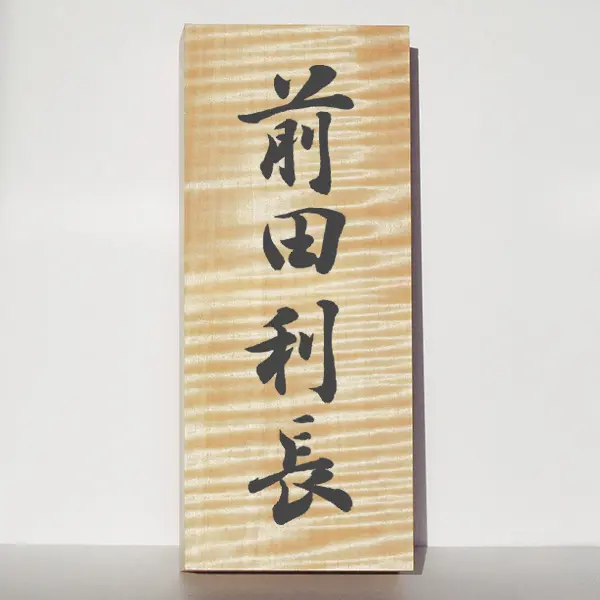 前田利長